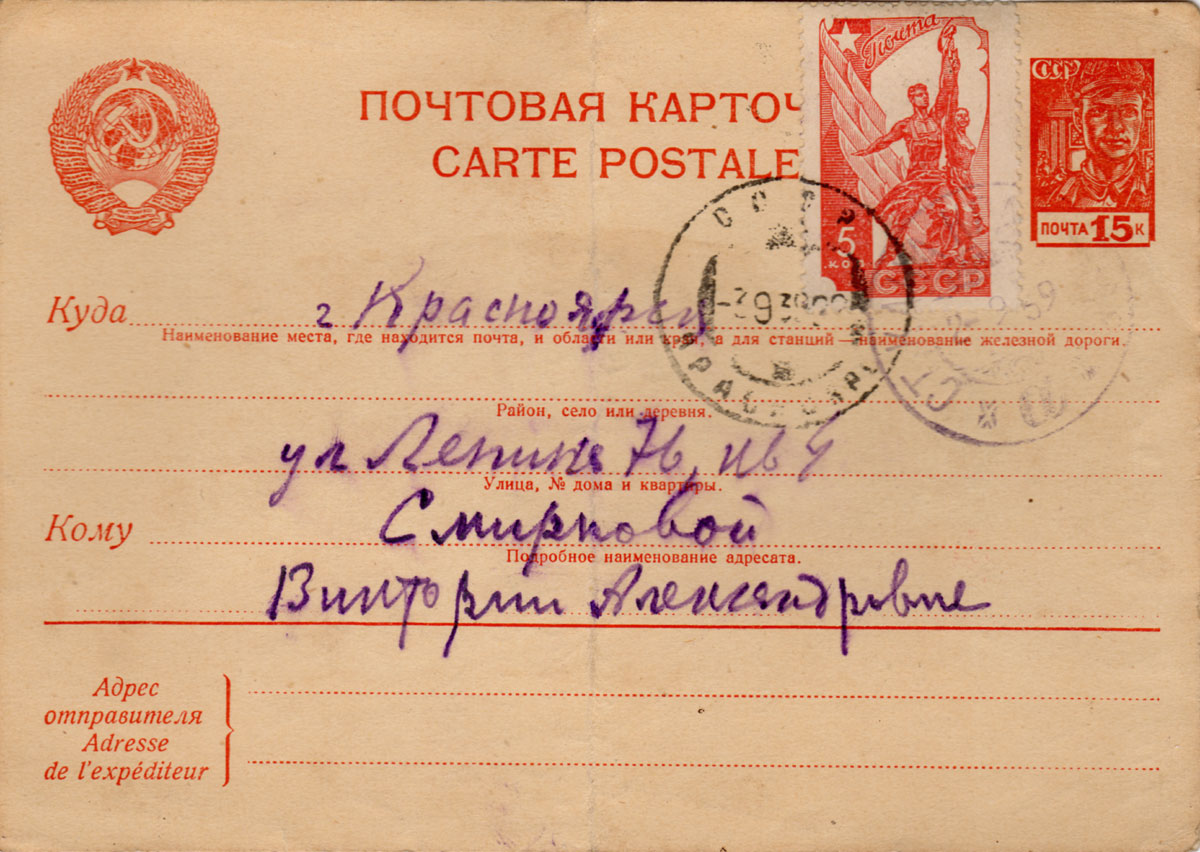 ПОЧТОВАЯ КАРТОЧ
CARTE POSTALE
Почта
5
КО
СССР
СССР
ПОЧТА 15 К
СССР
2-9-39
Куда г Красноярск
Наименование места, где находится почта, и области или края, а для станций—наименование железной дороги.
Район, село или деревня.
ул Ленина 76, кв 4
Улица, № дома и квартиры.
Кому Смирновой
Подробное наименование адресата.
Виктории Александровне
Адрес
отправителя
Adresse
de l'expéditeur